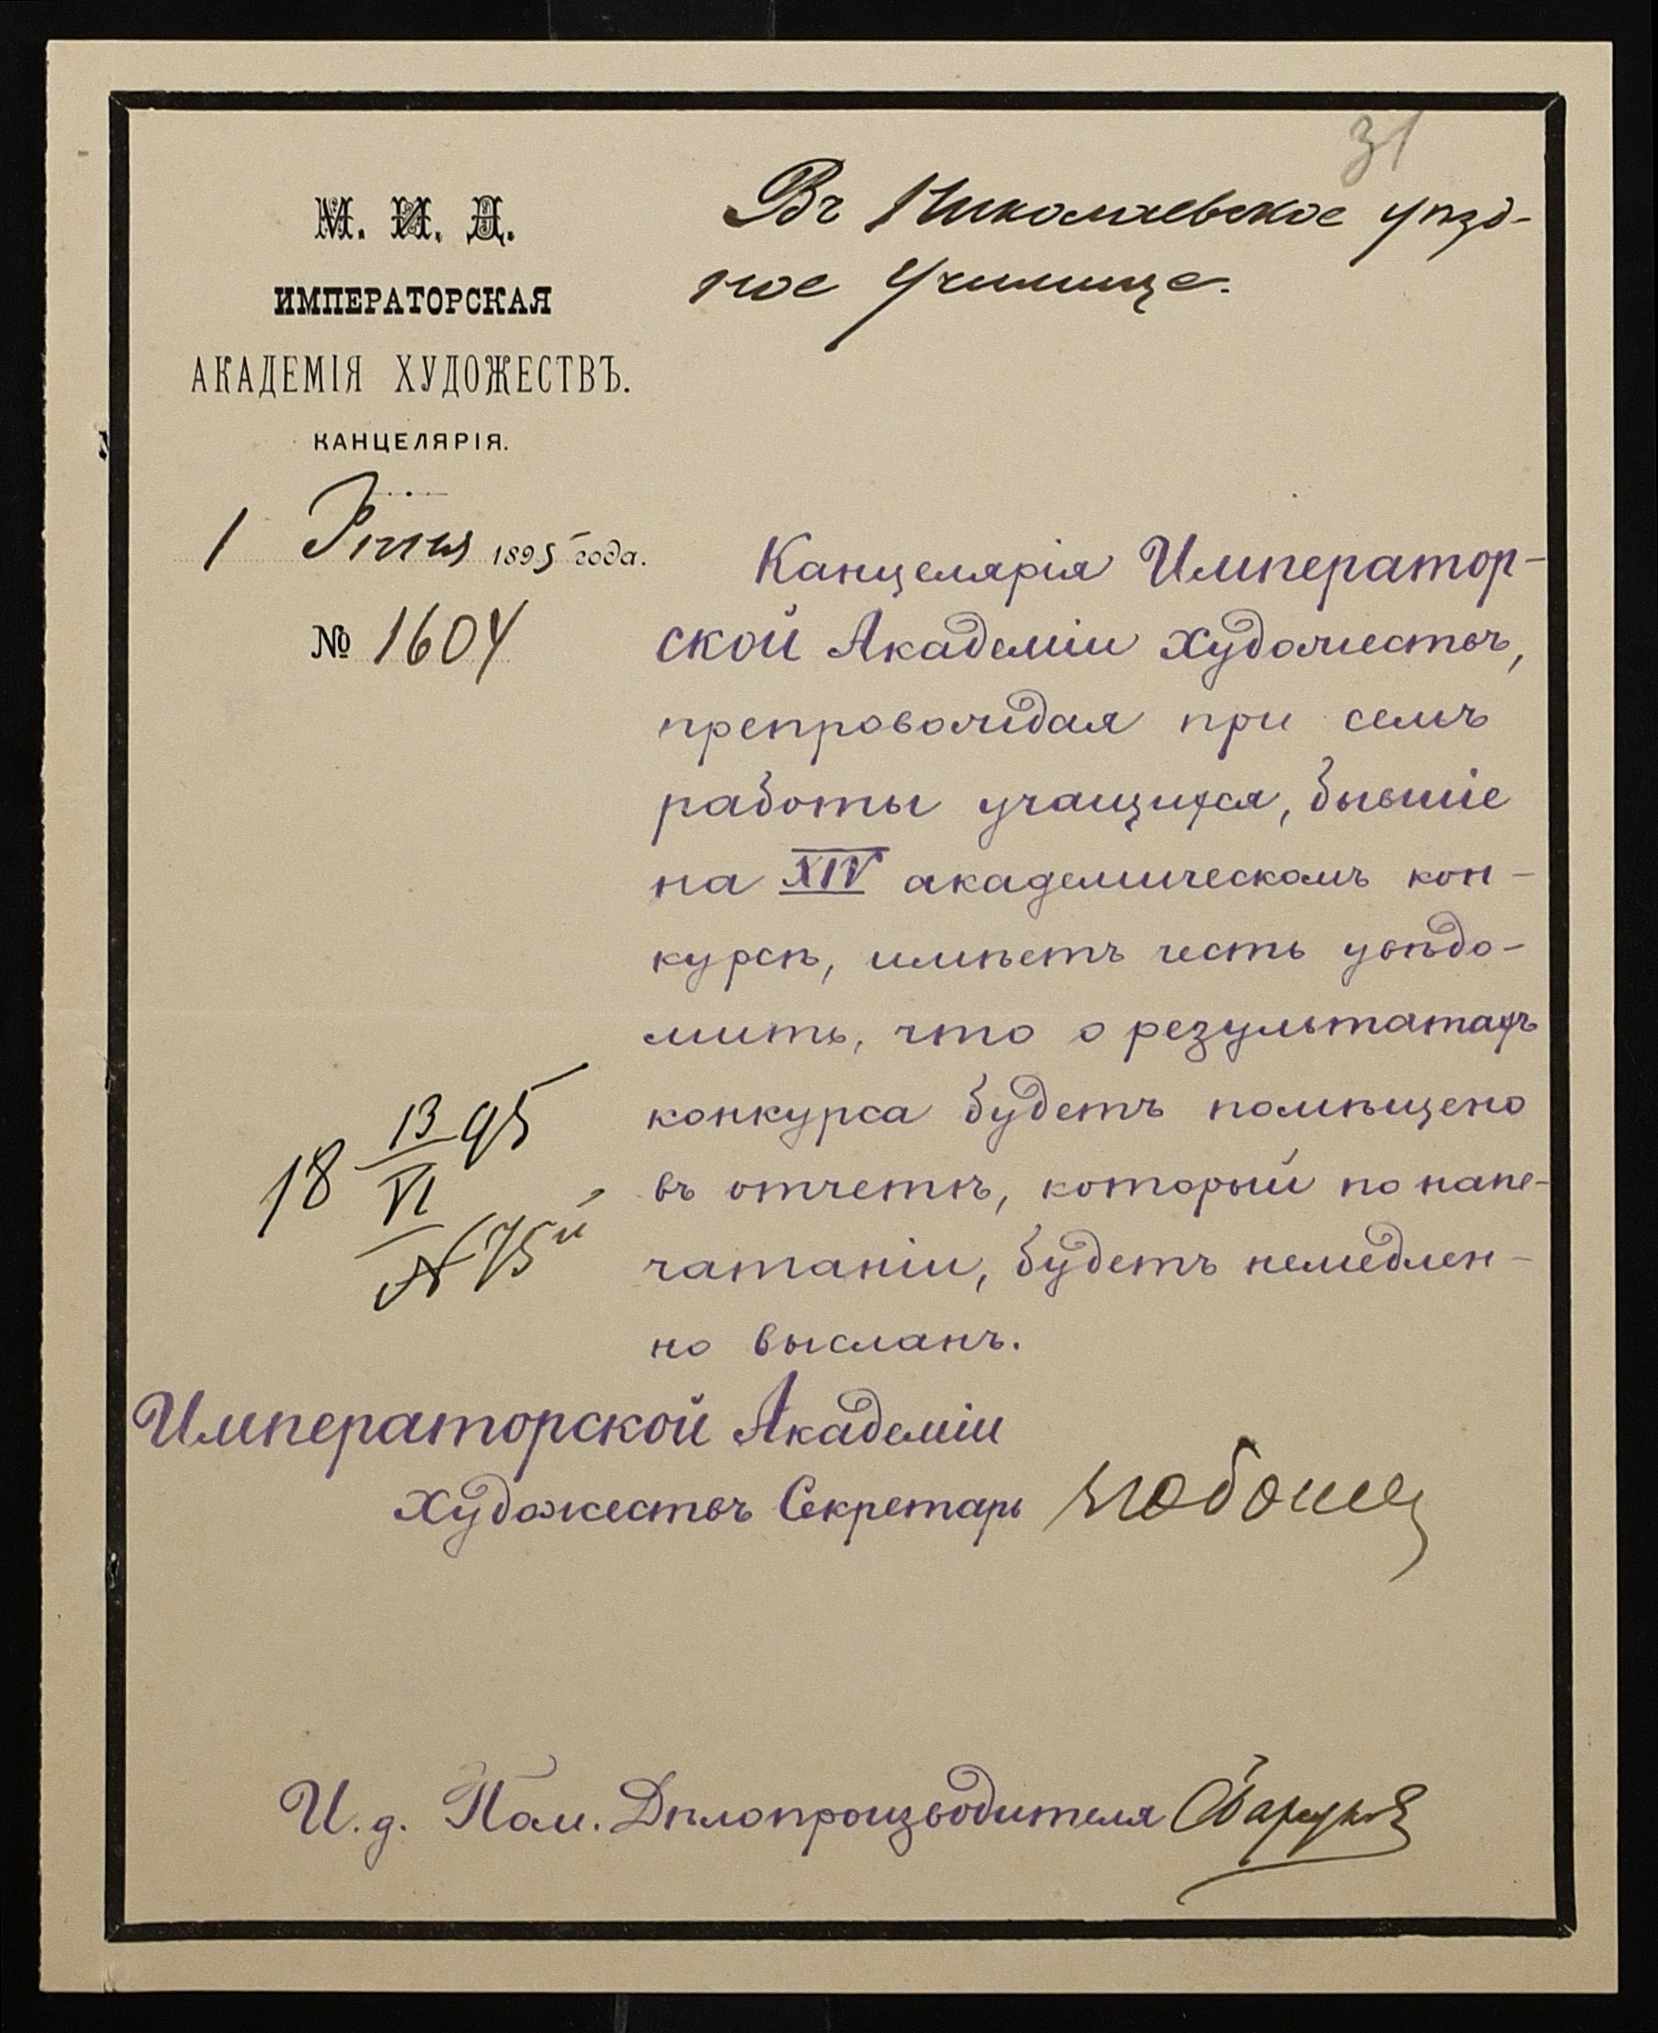 31
М. И. Д.
ИМПЕРАТОРСКАЯ
АКАДЕМІЯ ХУДОЖЕСТВЪ.
КАНЦЕЛЯРІЯ.
1 Іюня 1895 года.
№ 1604
Въ Николаевское уѣзд-
ное Училище.
Канцелярія Император-
ской Академіи Художествъ,
препровождая при семъ
работы учащихся, бывшіе
на XIV академическомъ кон-
курсѣ, имѣетъ честь увѣдо-
мить, что о результатахъ
конкурса будетъ помѣщено
въ отчетѣ, который по напе-
чатаніи, будетъ немедлен-
но высланъ.
18 13/VI 95
№ 75й
Императорской Академіи
Художествъ Секретарь
И. д. Пом. Дѣлопроизводителя